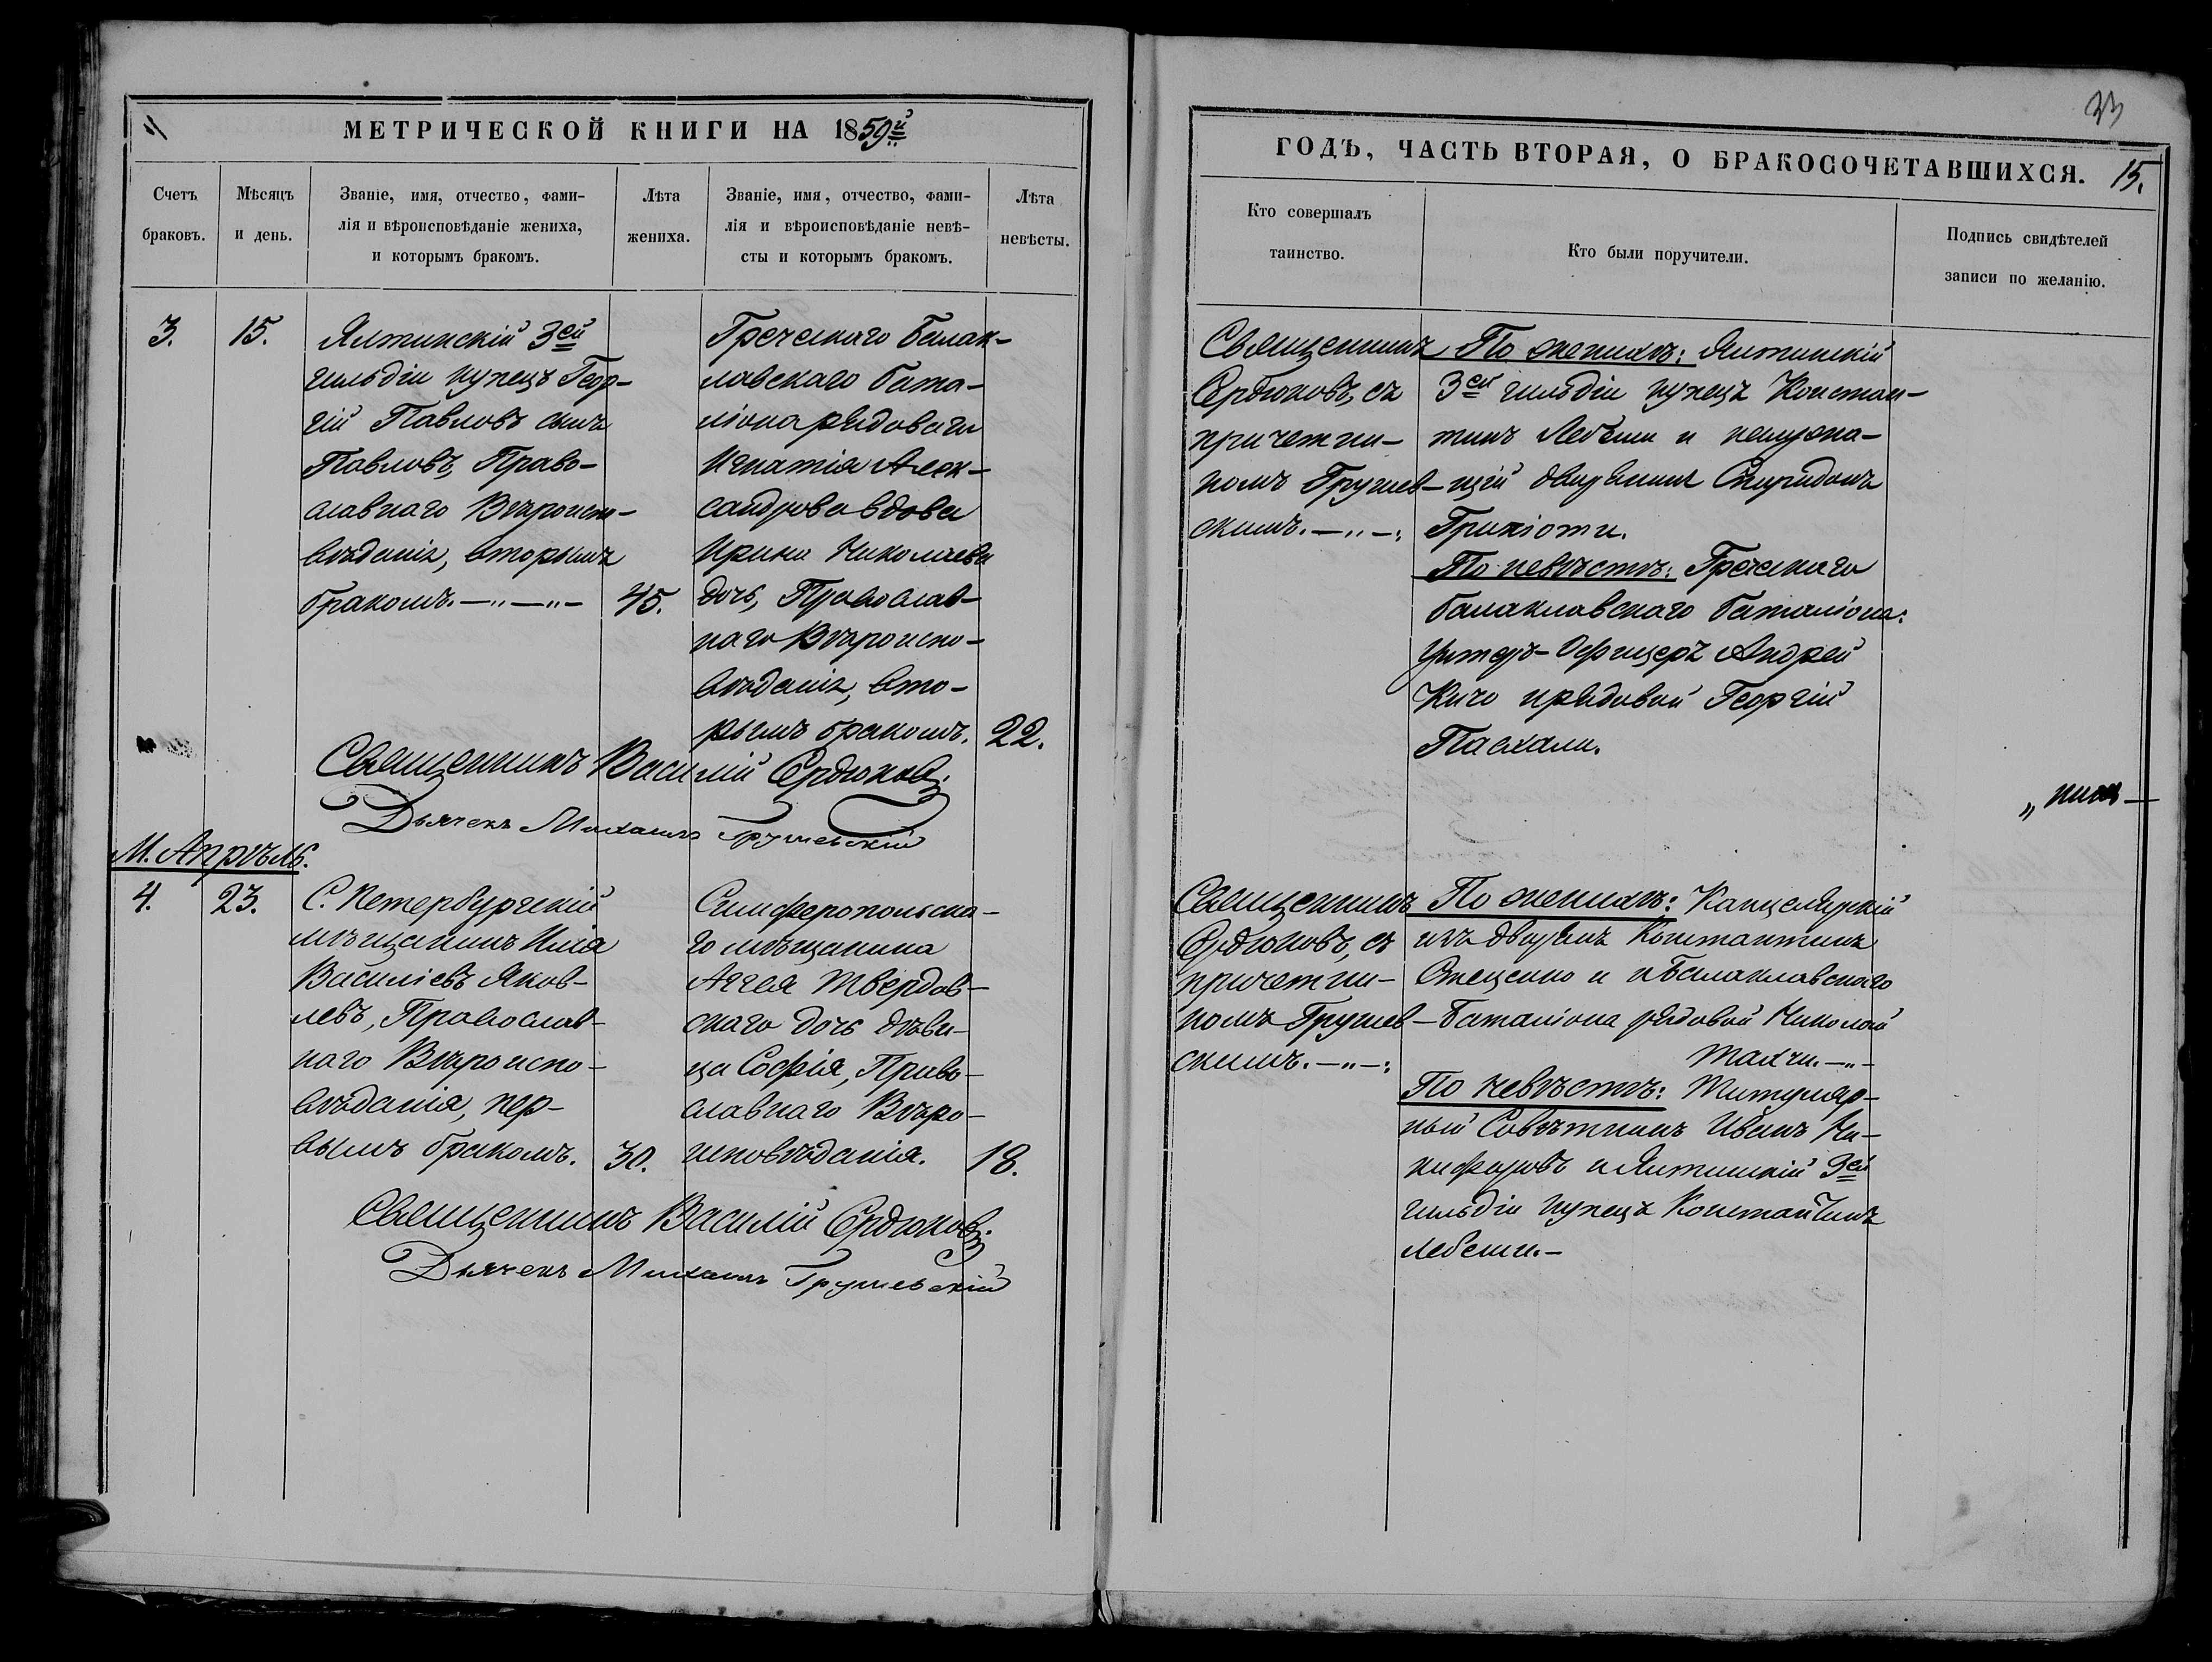 МЕТРИЧЕСКОЙ КНИГИ НА 1859й
Счетъ
браковъ.
Мѣсяцъ
и день.
Званіе, имя, отчество, фами-
лія и вѣроисповѣданіе жениха,
и которымъ бракомъ.
Лѣта
жениха.
Званіе, имя, отчество, фами-
лія и вѣроисповѣданіе невѣ-
сты и которымъ бракомъ.
Лѣта
невѣсты.
3.
15.
Ялтинскій 3ей
гильдіи купецъ Геор-
гій Павловъ сынъ
Павловъ, Право-
славнаго Вѣроиспо-
вѣданія, вторымъ
бракомъ.—„—„—
45.
Греческаго Балак-
лавскаго бата-
ліона рядоваго
Игнатія Алек-
сандрова вдова
Ирина Николаева
дочь, Православ-
наго Вѣроиспо-
вѣданія, вто-
рымъ бракомъ.
22.
Священникъ Василій Сердюковъ.
Дьячекъ Михаилъ Грушевскій
М. Апрѣль.
4.
23.
С. Петербургскій
мѣщанинъ Илія
Василіевъ Яков-
левъ, Православ-
наго Вѣроиспо-
вѣданія, пер-
вымъ бракомъ.
30.
Симферопольска-
го мѣщанина
Аггея Твердов-
скаго дочь дѣви-
ца Софія, Право-
славнаго Вѣро-
исповѣданія.
18.
Священникъ Василій Сердюковъ.
Дьячекъ Михаилъ Грушевскій
33
ГОДЪ, ЧАСТЬ ВТОРАЯ, О БРАКОСОЧЕТАВШИХСЯ. 15.
Кто совершалъ
таинство.
Кто были поручители.
Подпись свидѣтелей
записи по желанію.
Священникъ
Сердюковъ, съ
причетни-
комъ Грушев-
скимъ.—„—:
По женихѣ: Ялтинскій
3ей гильдіи купецъ Констан-
тинъ Лебеши и
дворянинъ Спиридонъ
Грипіоти.
По невѣстѣ: Греческаго
балаклавскаго баталіона:
Унтеръ-Офицеръ Андрей
Кичо и рядовой Георгій
Пасхали.
Священникъ
Сердюковъ, съ
причетни-
комъ Грушев-
скимъ.—„—:
По женихѣ: Канцелярскій
изъ дворянъ Константинъ
и Балаклавскаго
Баталіона рядовой Николай
По невѣстѣ: Титуляр-
ный Совѣтникъ Иванъ Ни-
кифоровъ и Ялтинскій 3ей
гильдіи купецъ Константинъ
Лебеши.—